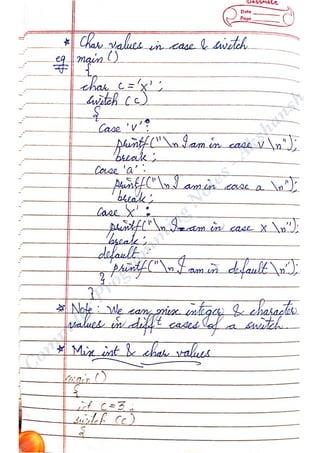 classmate
Date
Page
* Char values in case & switch
eg main()
{
char c = 'x' ;
switch (c)
{
case 'v' :
printf("\n I am in case v \n");
break ;
case 'a' :
printf("\n I am in case a \n");
break ;
case 'x' :
printf("\n I am in case x \n");
break ;
default :
printf("\n I am in default \n");
}
}
* Note : We can mix integer & character
values in diff^t cases of a switch.
* Mix int & char values
main()
{
int c = 3 ;
switch (c)
{